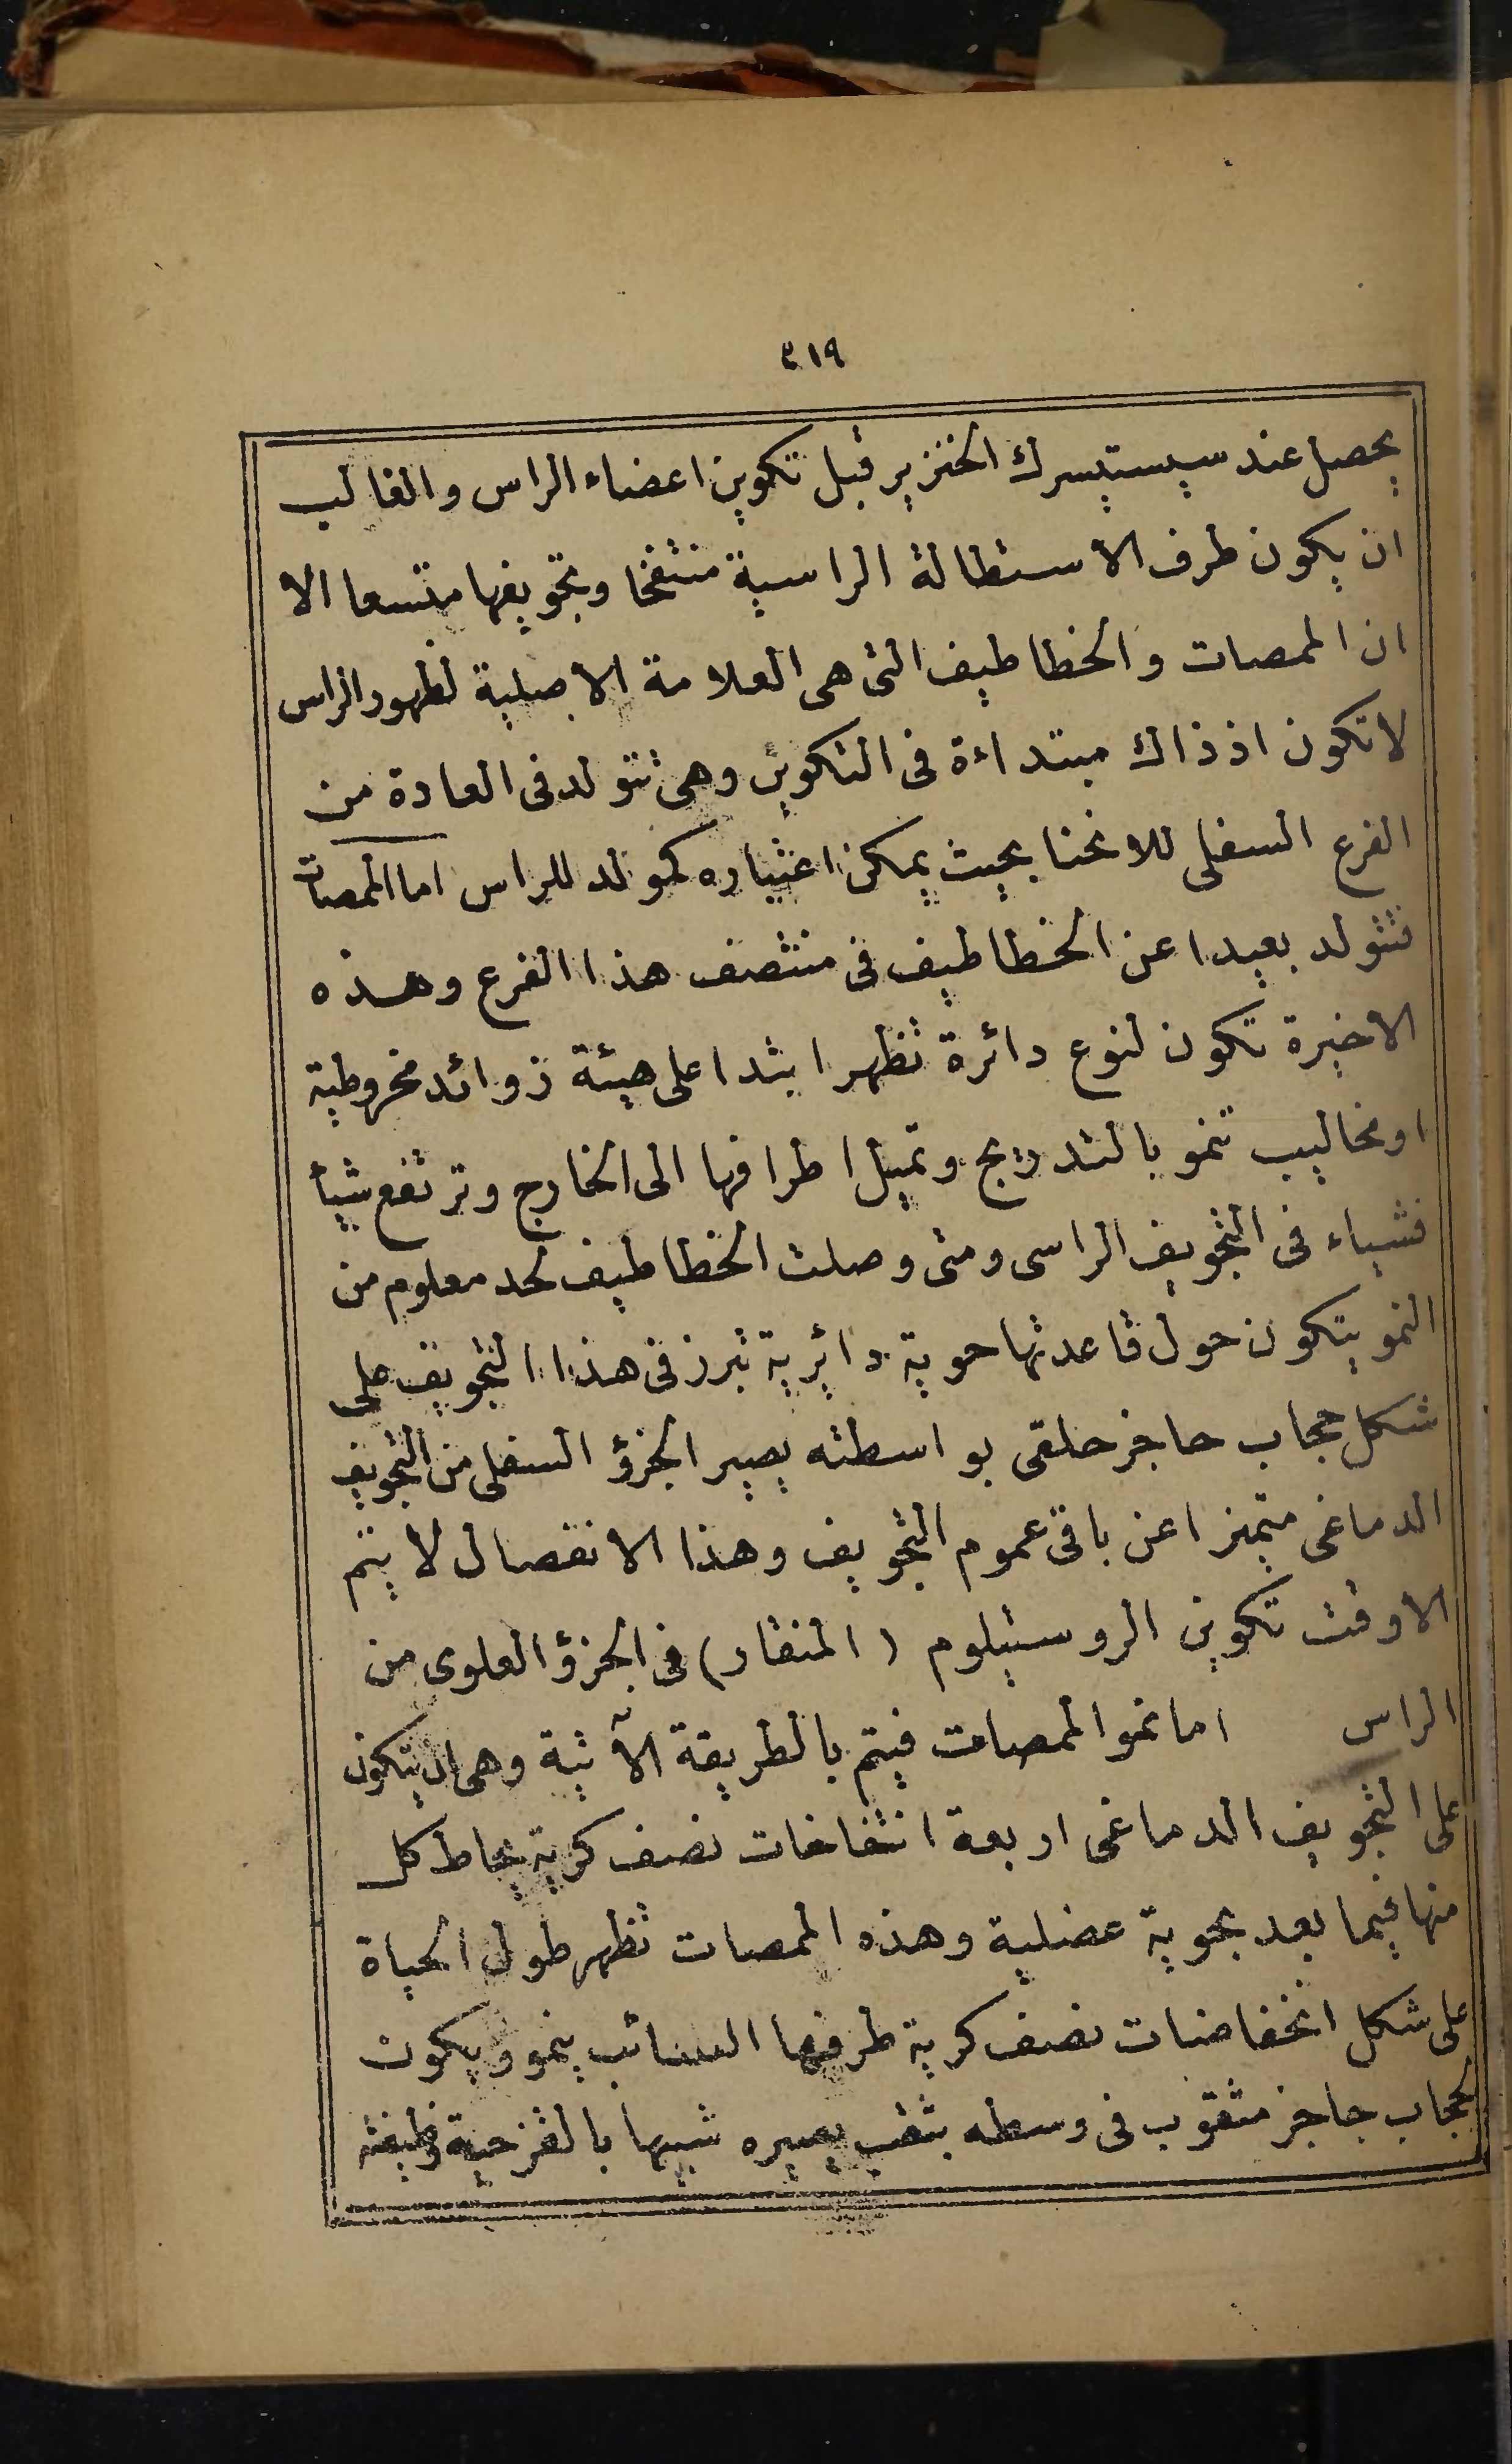 ٣١٩
يحصل عند سيستيسرك الخنزير قبل تكوين اعضاء الراس والغالب
ان يكون طرف الاستطالة الراسية منتفخا وتجويفها متسعا الا
ان الممصات والخطاطيف التى هى العلامة الاصلية لظهور الراس
لا تكون اذ ذاك مبتداءة فى التكوين وهى تتولد فى العادة من
الفرع السفلى للانحنا بحيث يمكن اعتباره كمولد للراس اما الممصات
فتتولد بعيدا عن الخطاطيف فى منتصف هذا الفرع وهذه
الاخيرة تكون لنوع دائرة تظهر ابتدا على هيئة زوائد مخروطية
او مخاليب تنمو بالتدريج وتميل اطرافها الى الخارج وترتفع شيأ
فشياء فى التجويف الراسى ومتى وصلت الخطاطيف لحد معلوم من
النمو يتكون حول قاعدتها حوية دائرية تبرز فى هذا التجويف على
شكل حجاب حاجز حلقى بواسطته يصير الجزؤ السفلى من التجويف
الدماغى متميزا عن باقى عموم التجويف وهذا الانفصال لا يتم
الا وقت تكوين الروستيلوم (المنقار) فى الجزؤ العلوى من
الراس اما نمو الممصات فيتم بالطريقة الآتية وهى ان يتكون
على التجويف الدماغى اربعة انتفاخات نصف كرية يحاط كل
منها فيما بعد بحوية عضلية وهذه الممصات تظهر طول الحياة
على شكل انخفاضات نصف كرية طرفها السائب ينمو ويكون
كحجاب حاجز مثقوب فى وسطه بثقب يصيره شبيها بالقزحية وظيفته